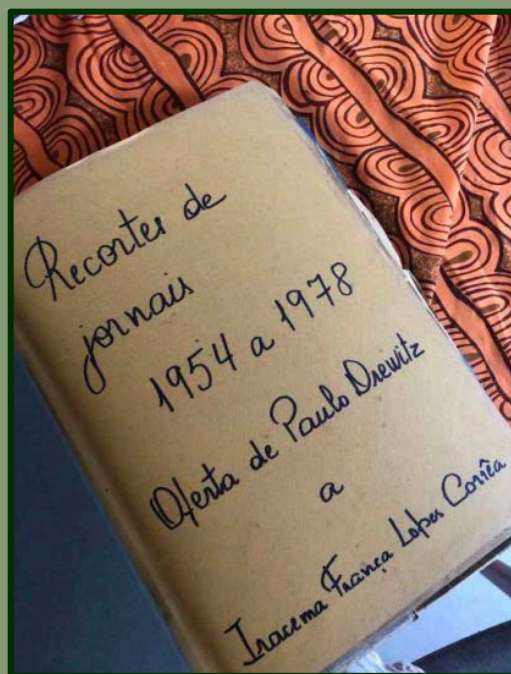 Recortes de
jornais
1954 a 1978
Oferta de Paulo Drewitz
a
Iracema França Lopes Corrêa